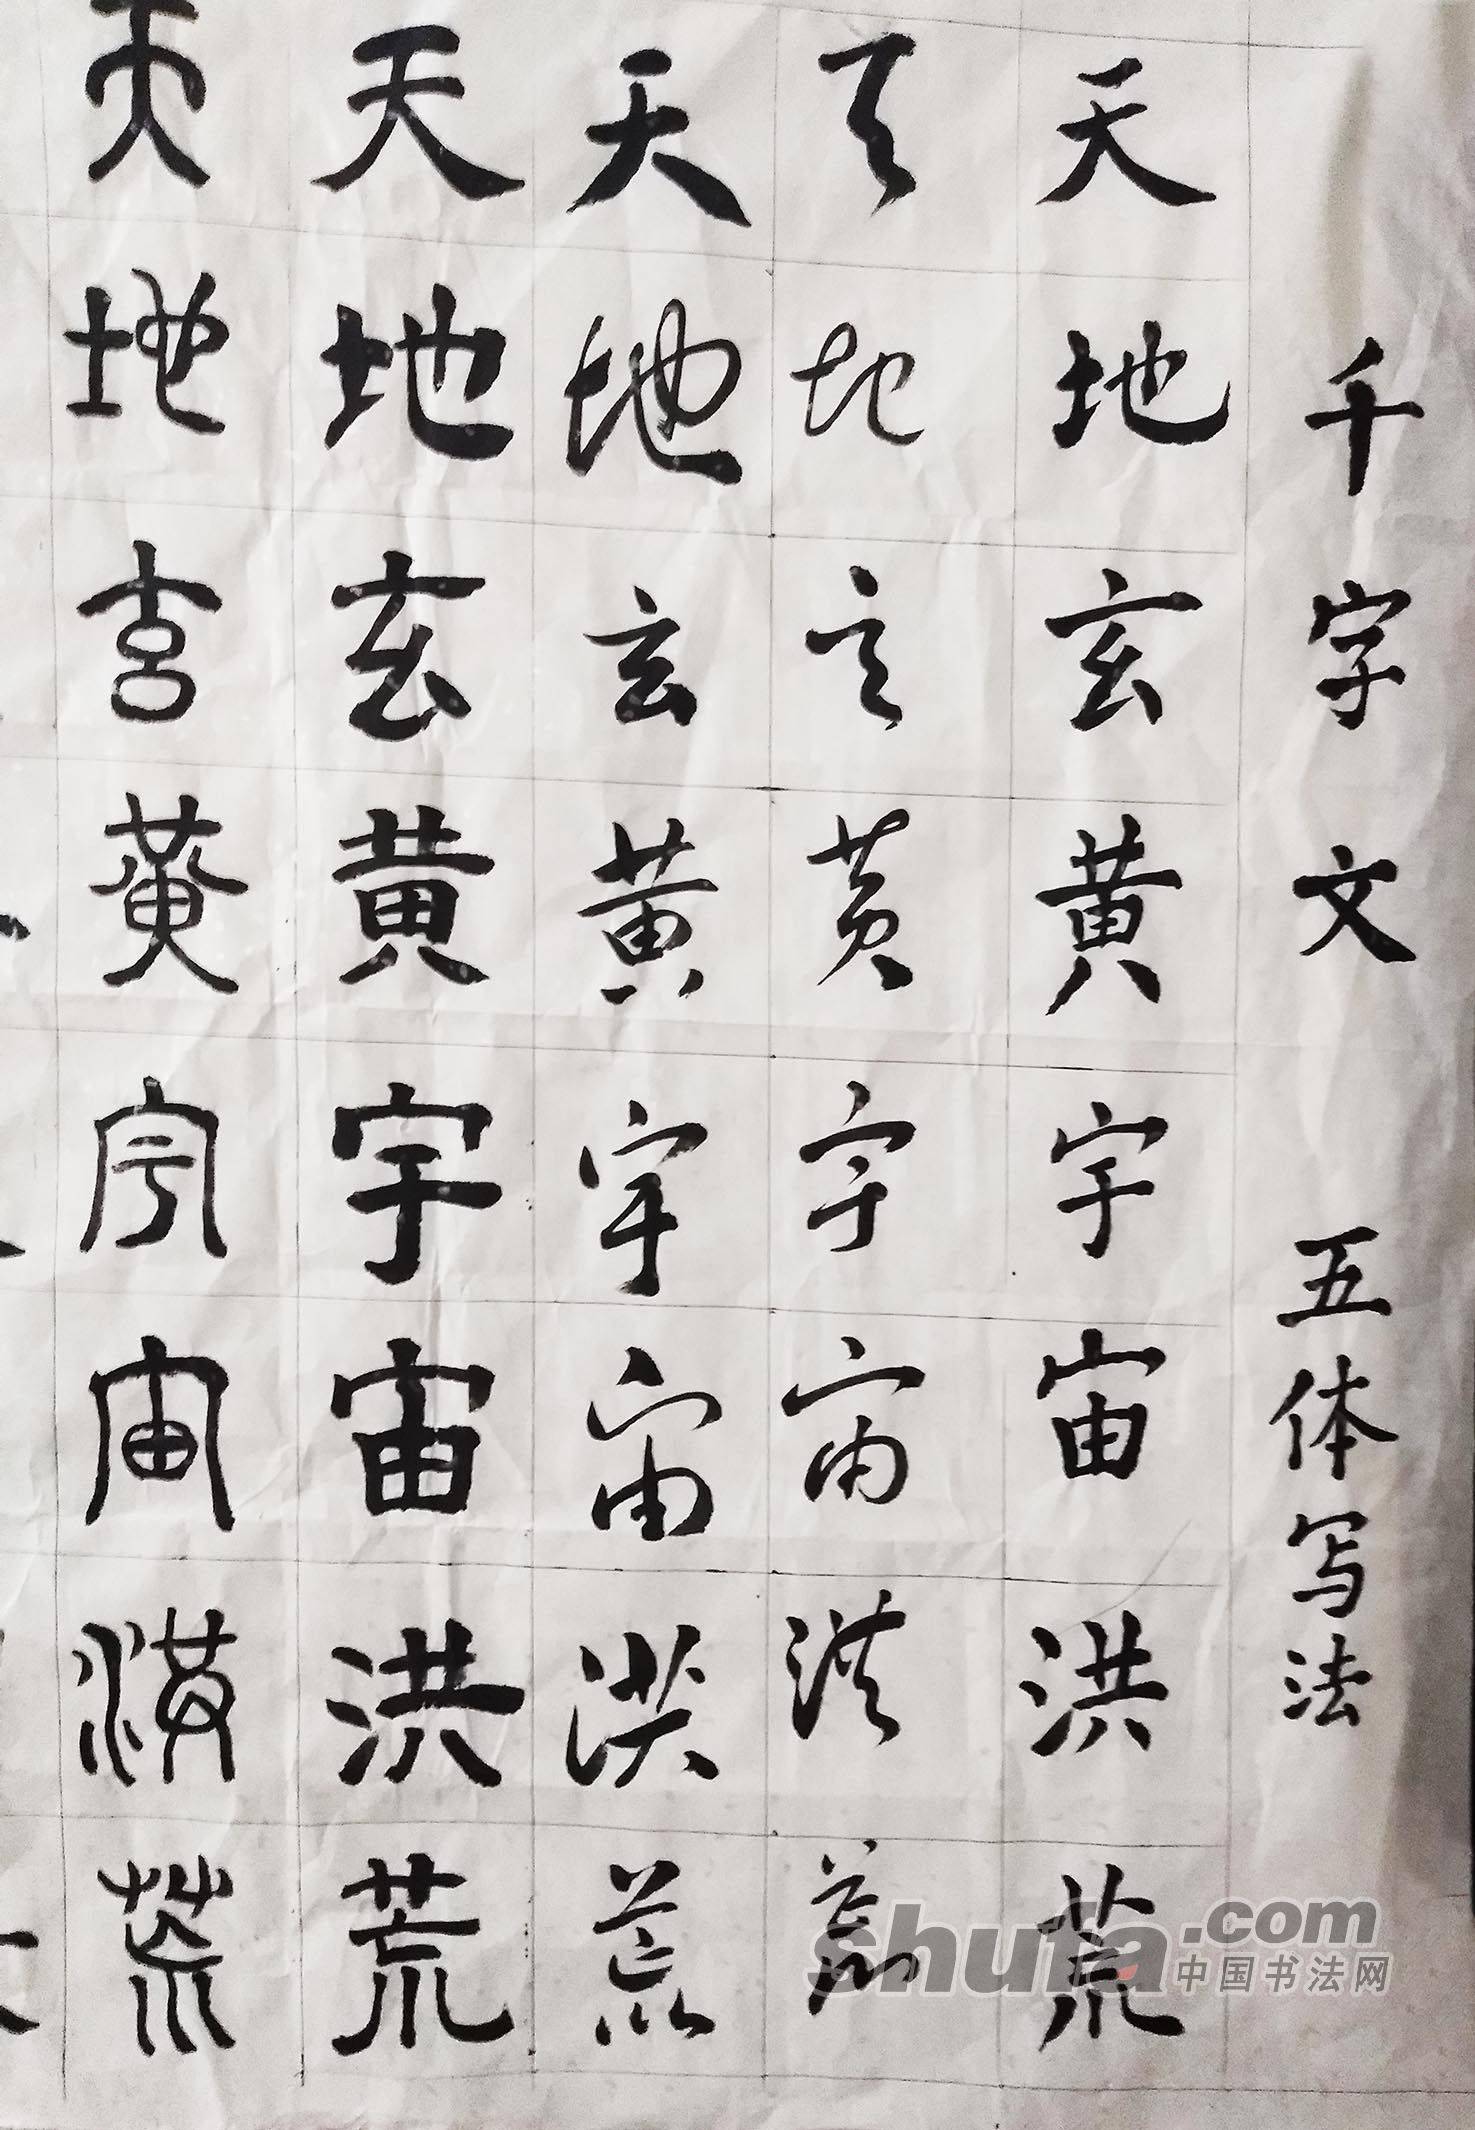 千字文 五体写法
天地玄黄宇宙洪荒
天地玄黄宇宙洪荒
天地玄黄宇宙洪荒
天地玄黄宇宙洪荒
天地玄黄宇宙洪荒
shufa.com
中国书法网